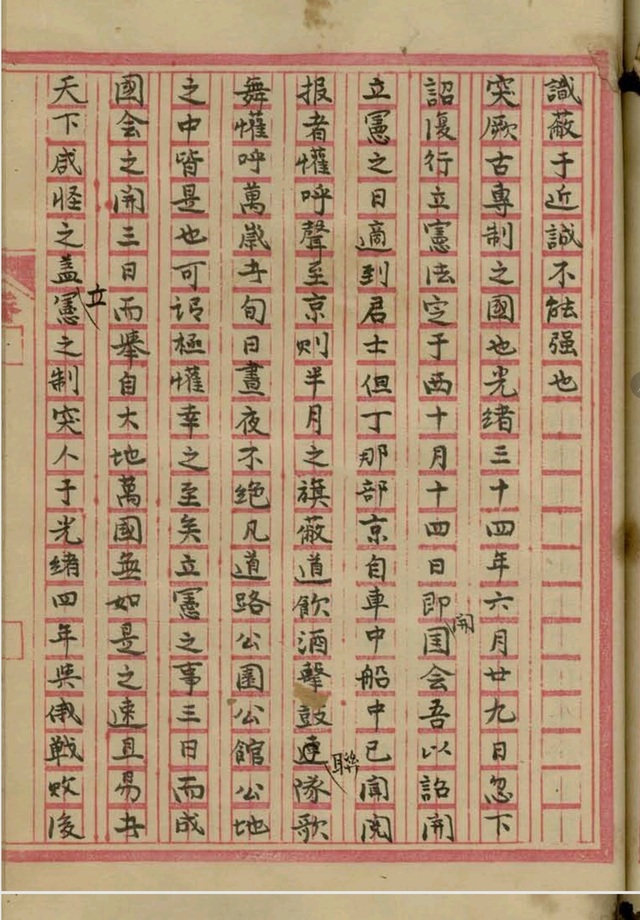 識蔽于近誠不能强也
突厥古專制之國也光緒三十四年六月廿九日忽下
詔復行立憲法定于西十月十四日即開国会吾以詔開
立憲之日適到君士但丁那部京自車中船中已聞閲
报者懽呼聲至京则半月之旗蔽道飲酒擊鼓連聯隊歌
舞懽呼萬歲者旬日晝夜不绝凡道路公園公館公地
之中皆是也可谓極懽幸之至矣立憲之事三日而成
國会之開三日而舉自大地萬國無如是之速且易者
天下咸怪之盖立憲之制突人于光緒四年與俄戰败後